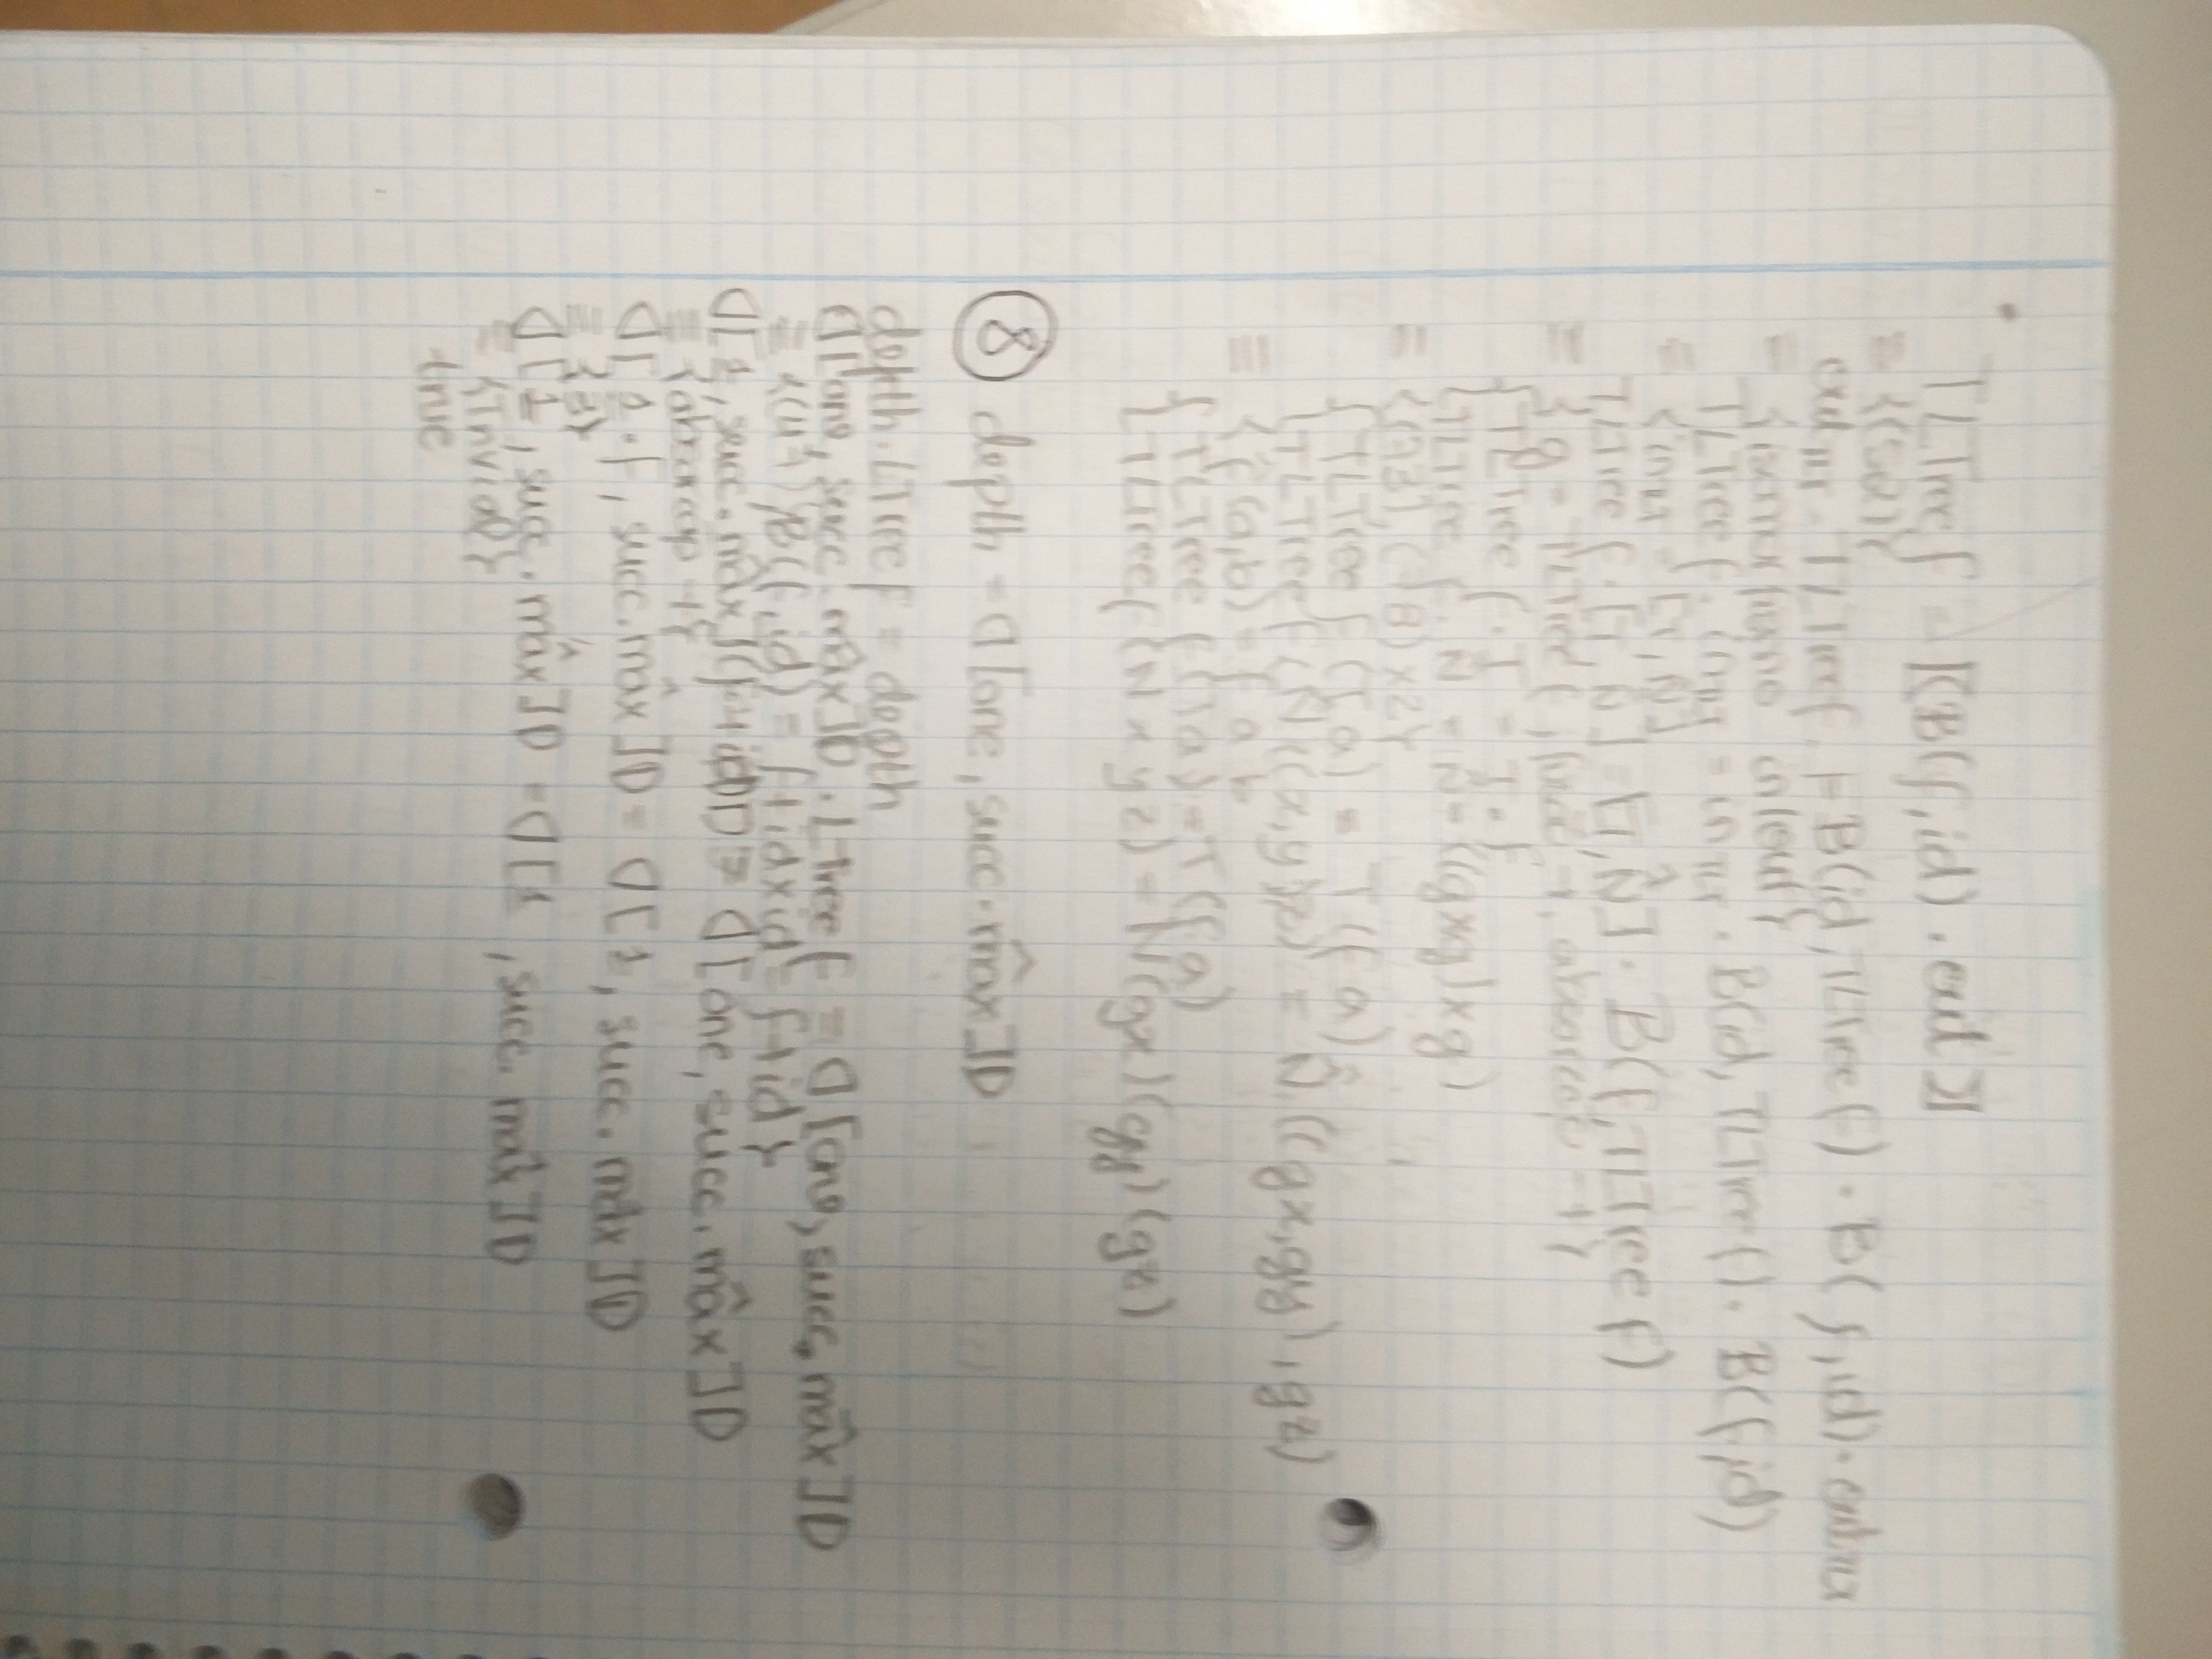 TLTree f = [(B(f,id) . out)]
≡ {(52)}
out . TLTree f = B(id,TLTree f) . B(f,id) . out
≡ {isomorfismo in/out}
TLTree f . in = in . B(id,TLTree f) . B(f,id)
≡ {in = [T,N̂]
TLTree f . [T,N̂] = [T,N̂] . B(f,TLTree f)
≡ {g = TLTree f, fusão +, absorção +}
{TLTree f . T = T . f
TLTree f . N̂ = N̂ . ((gxg)xg)
≡ {(73), (78)x2}
{TLTree f (T a) = T(f a)
TLTree f (N̂((x,y),z)) = N̂ ((gx,gy),gz)
≡ {f̂(a,b) = f a b
{TLTree f (T a) = T(f a)
TLTree f (N x y z) = N(gx)(gy)(gz)
⑧ depth = ⦇[one, succ.mâx]⦈
depth.LTree f = depth
⦇[one, succ.mâx]⦈ . LTree f = ⦇[one, succ.mâx]⦈
≡ {(47), B(f,id) = f+idxid = f+id}
⦇[1, succ.mâx](f+id)⦈ = ⦇[one, succ.mâx]⦈
≡ {absorçao +}
⦇[1.f, succ.mâx]⦈ = ⦇[1, succ.mâx]⦈
≡ {3}
⦇[1, succ.mâx]⦈ = ⦇[1, succ.mâx]⦈
≡ {Trivial}
true